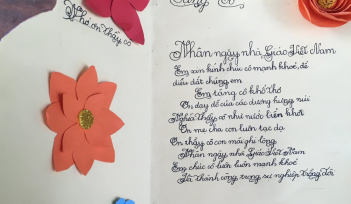 Nhớ ơn thầy cô
Nhân ngày nhà Giáo Việt Nam
Em xin kính chúc cô mạnh khoẻ, để
dìu dắt chúng em
Em tặng cô khổ thơ
Ơn dạy dỗ của các dương hùng núi
Nghĩa Thầy, cô như nước biển khơi
Ơn mẹ cha luôn tạc dạ
Ơn thầy cô con mãi ghi lòng
Nhân ngày, nhà Giáo Việt Nam
Em chúc cô luôn luôn mạnh khoẻ
Và thành công trong sự nghiệp trồng đời